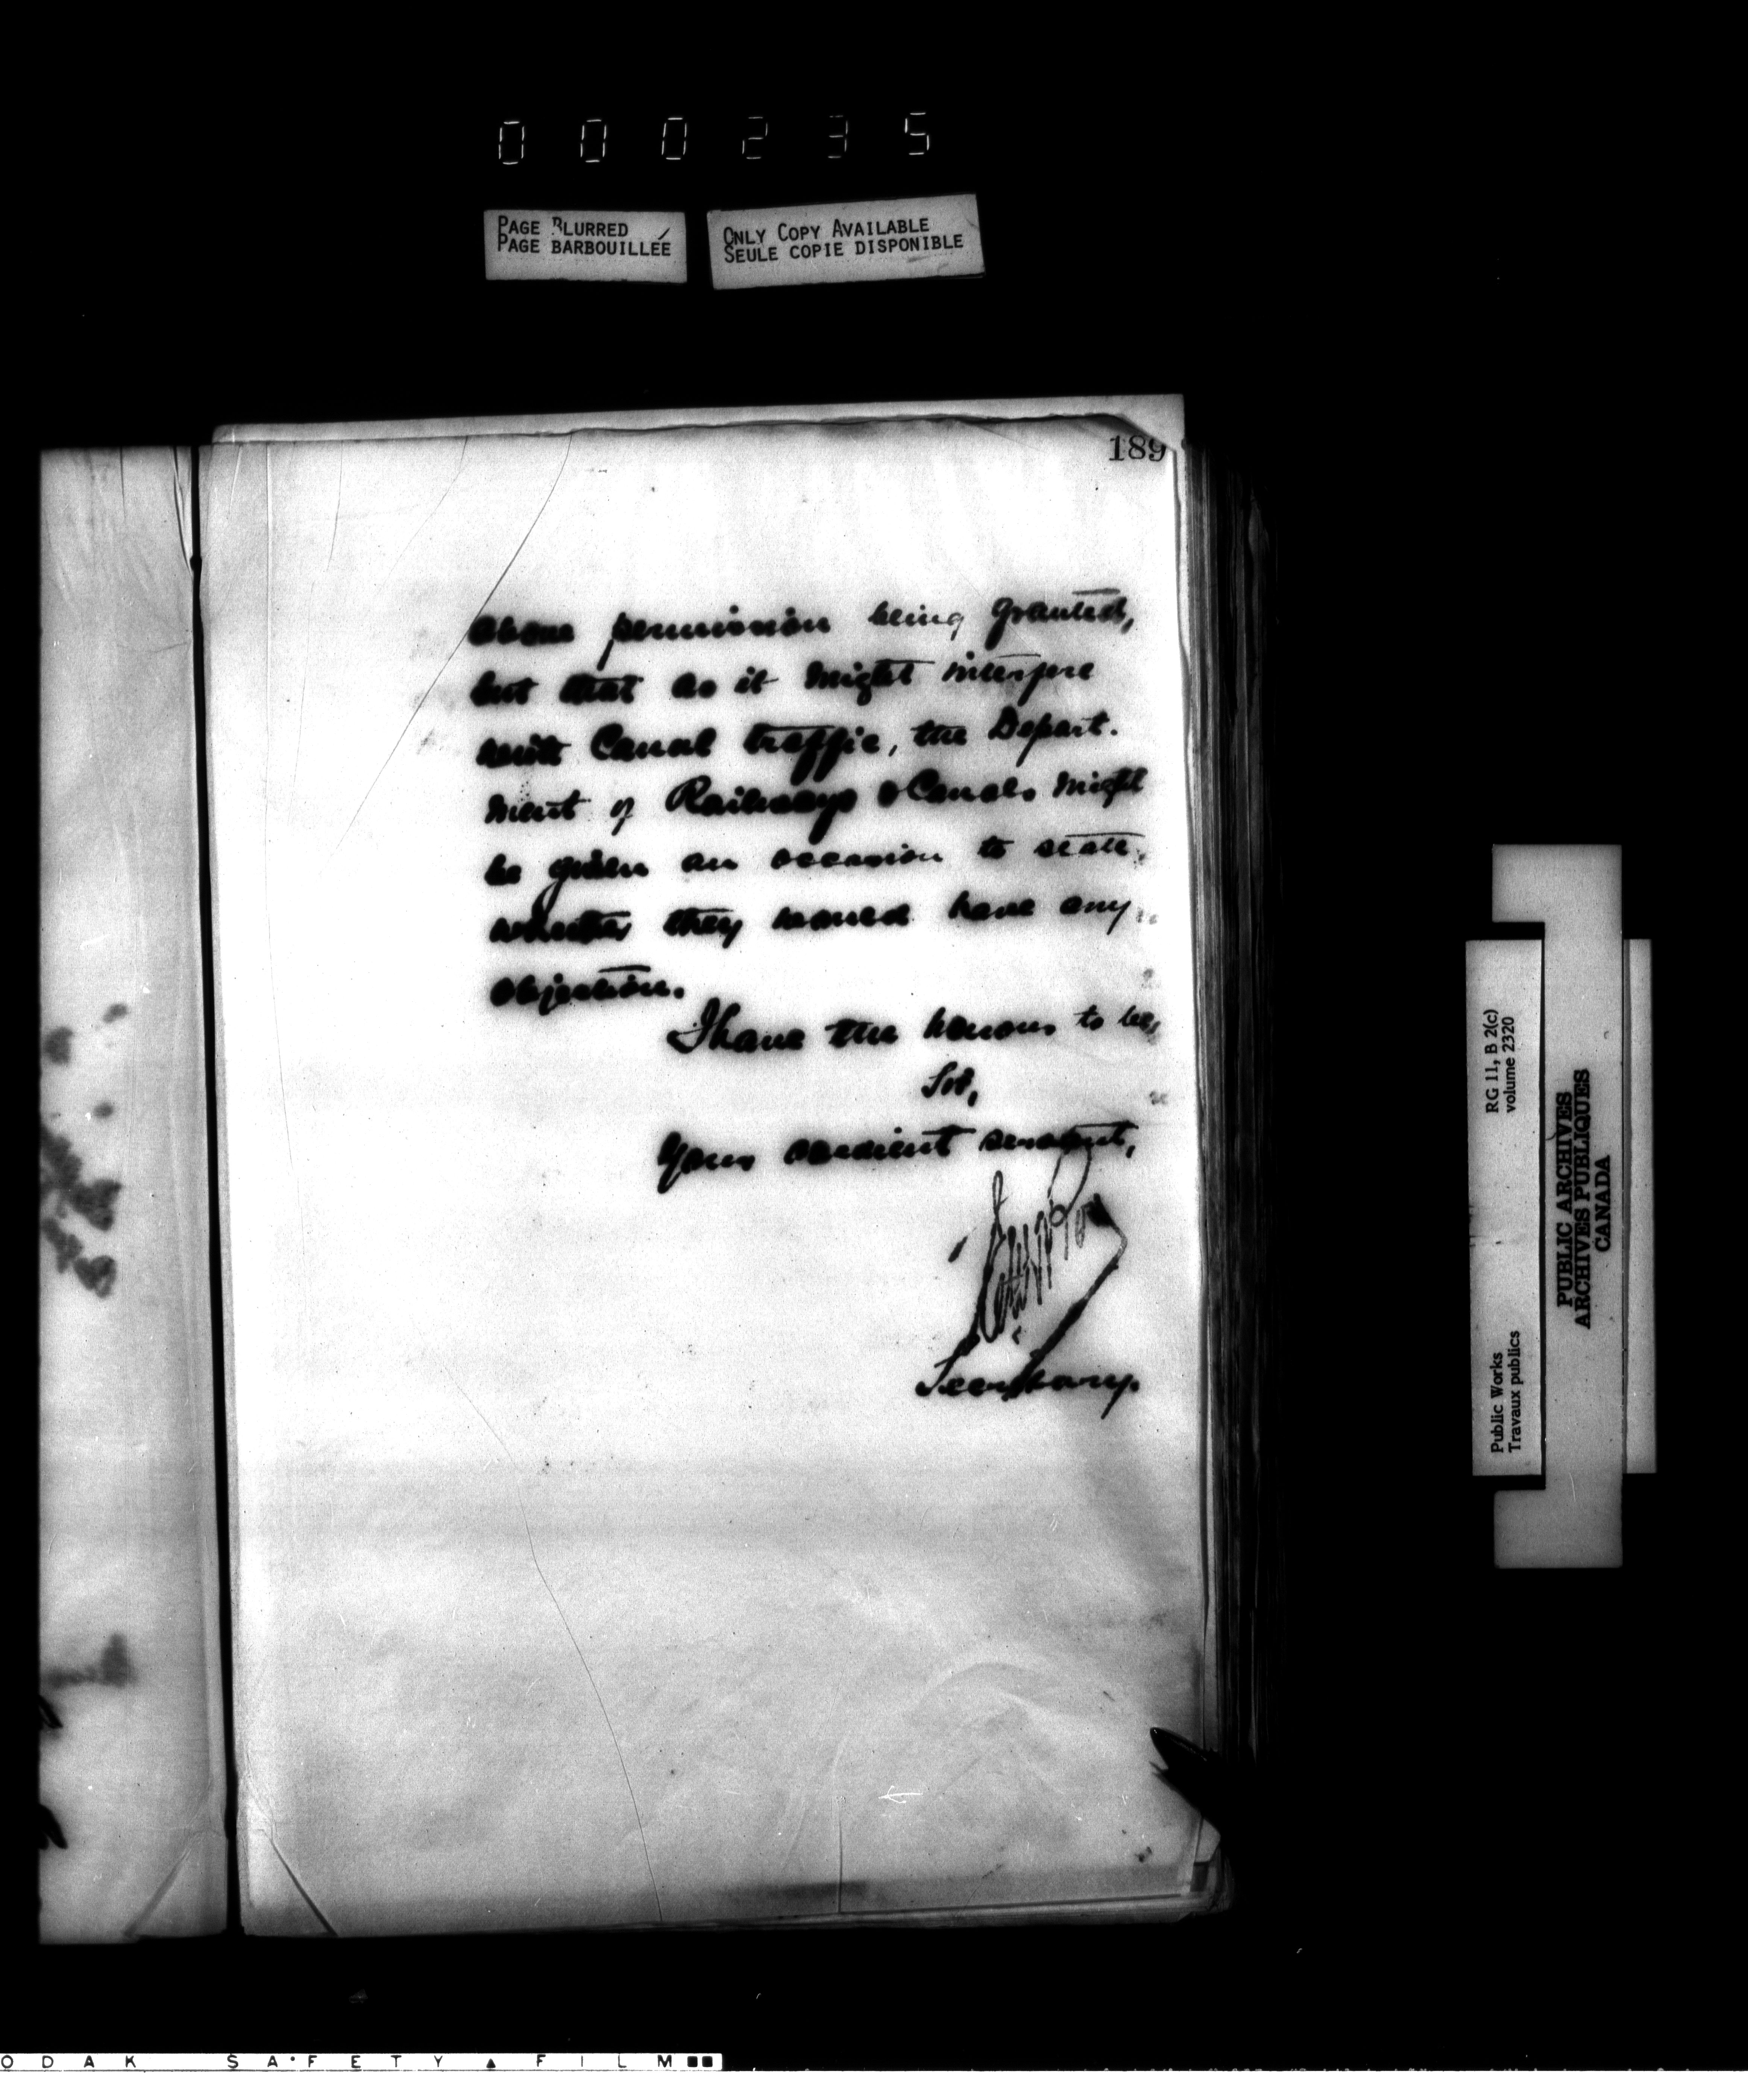 000235
PAGE BLURRED
PAGE BARBOUILLÉE
ONLY COPY AVAILABLE
SEULE COPIE DISPONIBLE
189
above permission being granted,
but that as it might interfere
with Canal traffic, the Depart-
ment of Railways & Canals might
be given an occasion to state
whether they would have any
objection.
I have the honour to be,
Sir,
Your obedient servant,
Secretary.
RG 11, B 2(c)
volume 2320
Public Works
Travaux publics
PUBLIC ARCHIVES
ARCHIVES PUBLIQUES
CANADA
ODAK SAFETY FILM